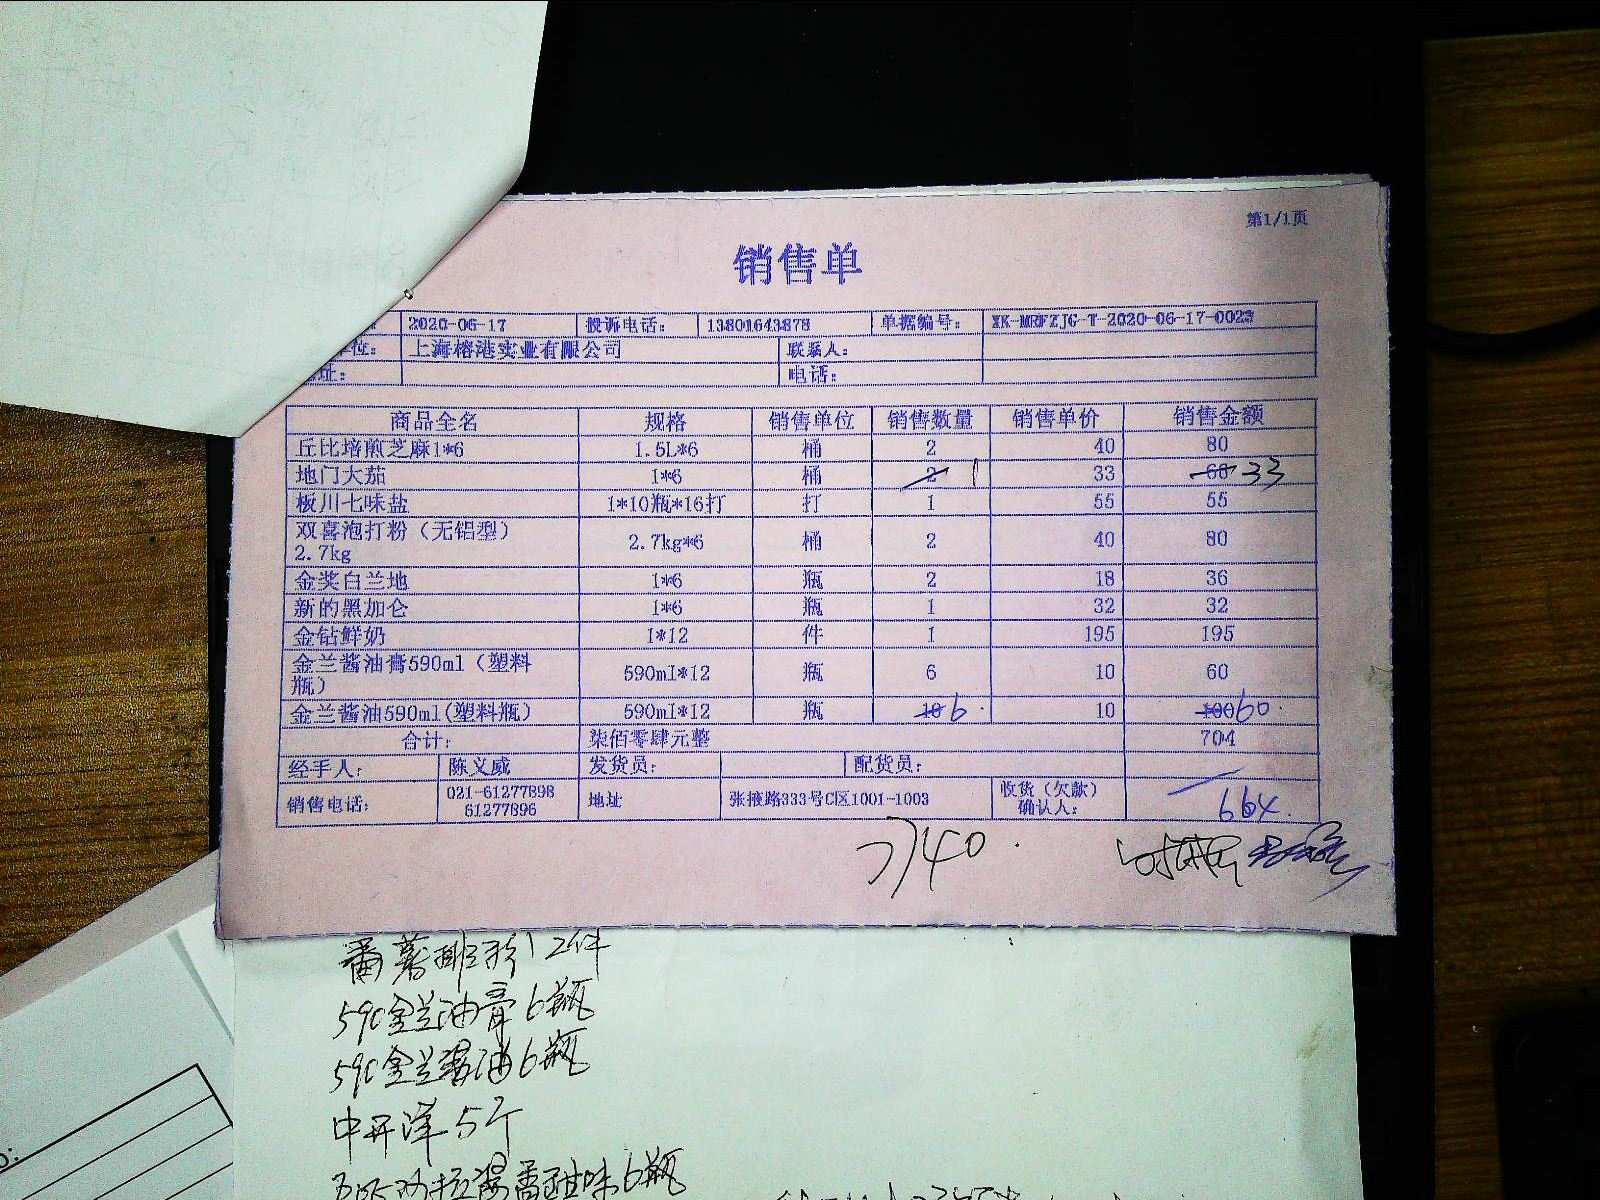 第1/1页
销售单
2020-06-17 投诉电话： 13801643878 单据编号： XK-MRFZJG-T-2020-06-17-0023
位： 上海榕港实业有限公司 联系人：
址： 电话：
商品全名 规格 销售单位 销售数量 销售单价 销售金额
丘比培煎芝麻1*6 1.5L*6 桶 2 40 80
地门大茄 1*6 桶 2 1 33 66 33
板川七味盐 1*10瓶*16打 打 1 55 55
双喜泡打粉（无铝型） 2.7kg*6 桶 2 40 80
2.7kg
金奖白兰地 1*6 瓶 2 18 36
新的黑加仑 1*6 瓶 1 32 32
金钻鲜奶 1*12 件 1 195 195
金兰酱油膏590ml（塑料 590ml*12 瓶 6 10 60
瓶）
金兰酱油590ml(塑料瓶） 590ml*12 瓶 10 6 10 100 60
合计： 柒佰零肆元整 704
经手人： 陈义威 发货员： 配货员：
销售电话： 021-61277898 地址 张掖路333号C区1001-1003 收货（欠款）
61277896 确认人： 664
140
番薯 粉12件
590金兰油膏6瓶
590金兰酱油6瓶
中开洋5斤
味6瓶